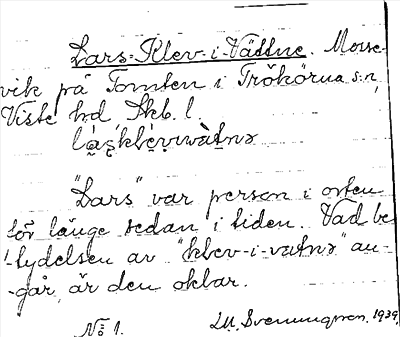 Lars-Klev-i-Vättne. Mosse-
vik på Tomten i Trökörna s:n,
Viste hd, Skb. l.
"Lars" var person i orten
för länge sedan i tiden. Vad be
tydelsen av "klev-i-vatnə" an-
går, är den oklar.
No 1. L.M. Svenungson. 1939.